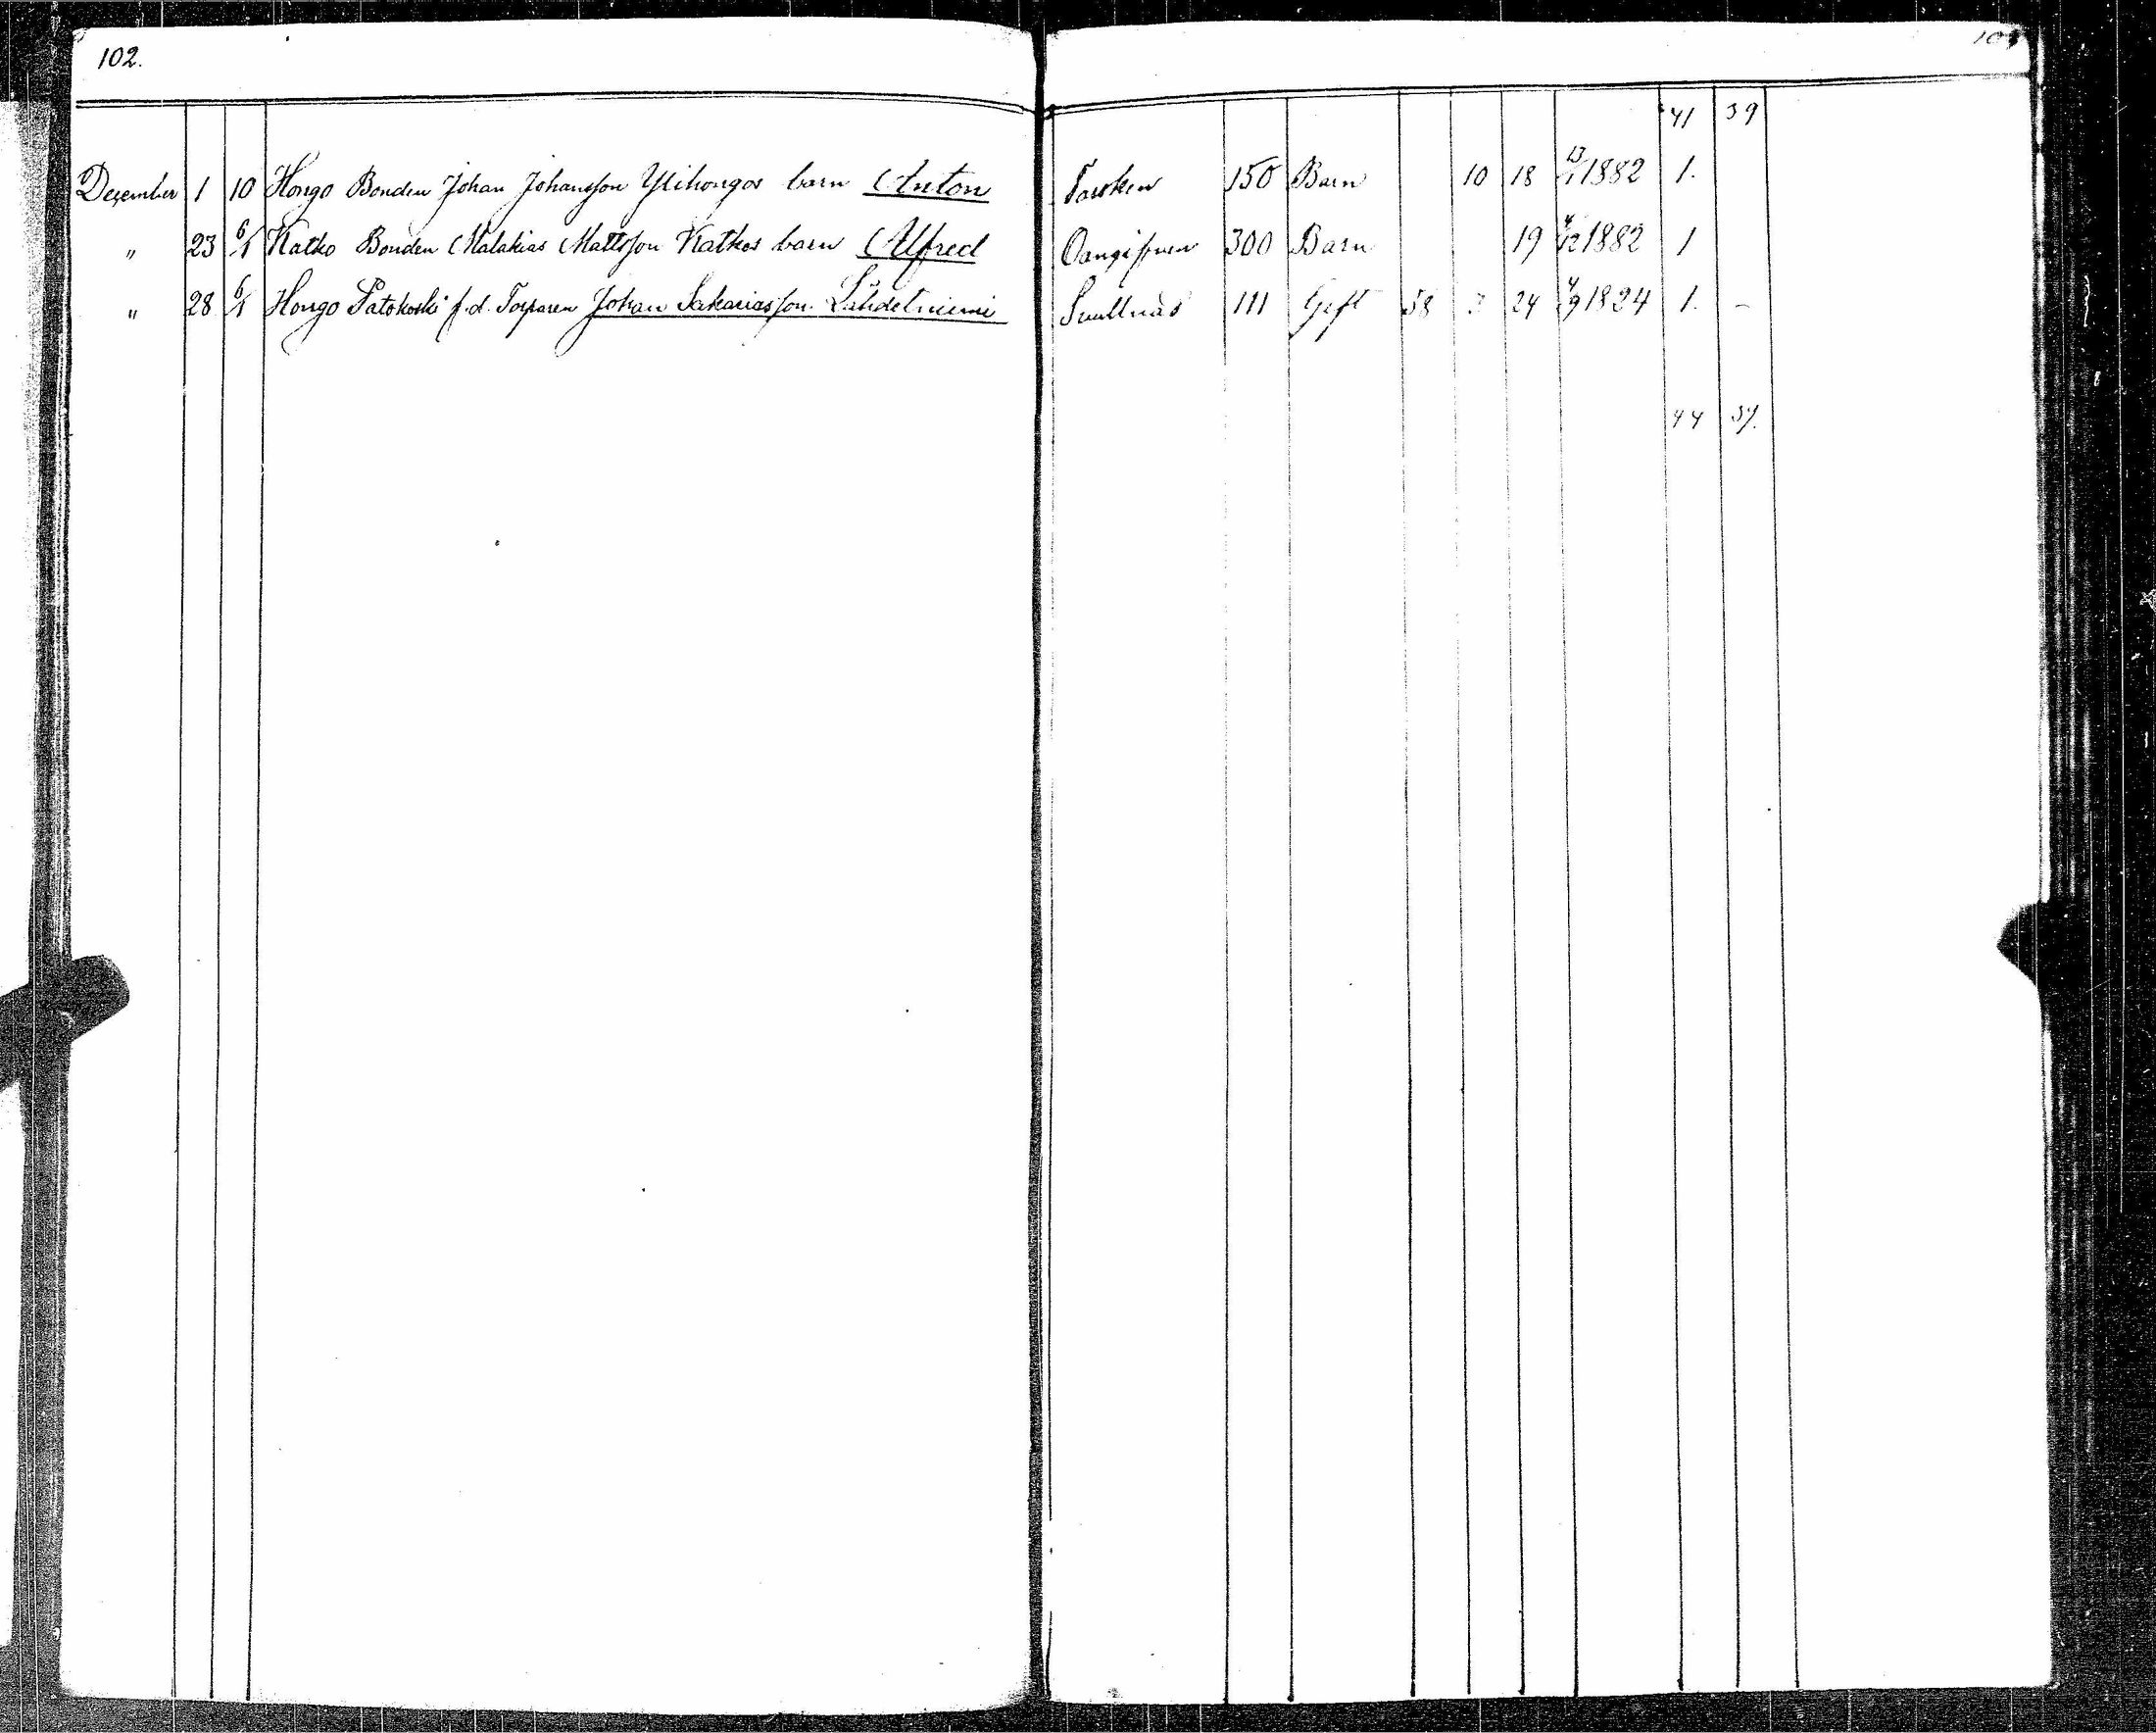 102.
41 39
December 1 10 Hongo Bonden Johan Johansson Ylihongos barn Anton Torsken 150 Barn 10 18 13/1 1882 1.
" 23 6/1 Katko Bonden Malakias Mattsson Katkos barn Alfred 300 Barn 19 4/12 1882 1
" 28 6/1 Hongo Patokoski f.d. Torparen Johan Sakariasson Lähdetniemi 111 Gift 58 3 24 4/9 1824 1. -
44 39.